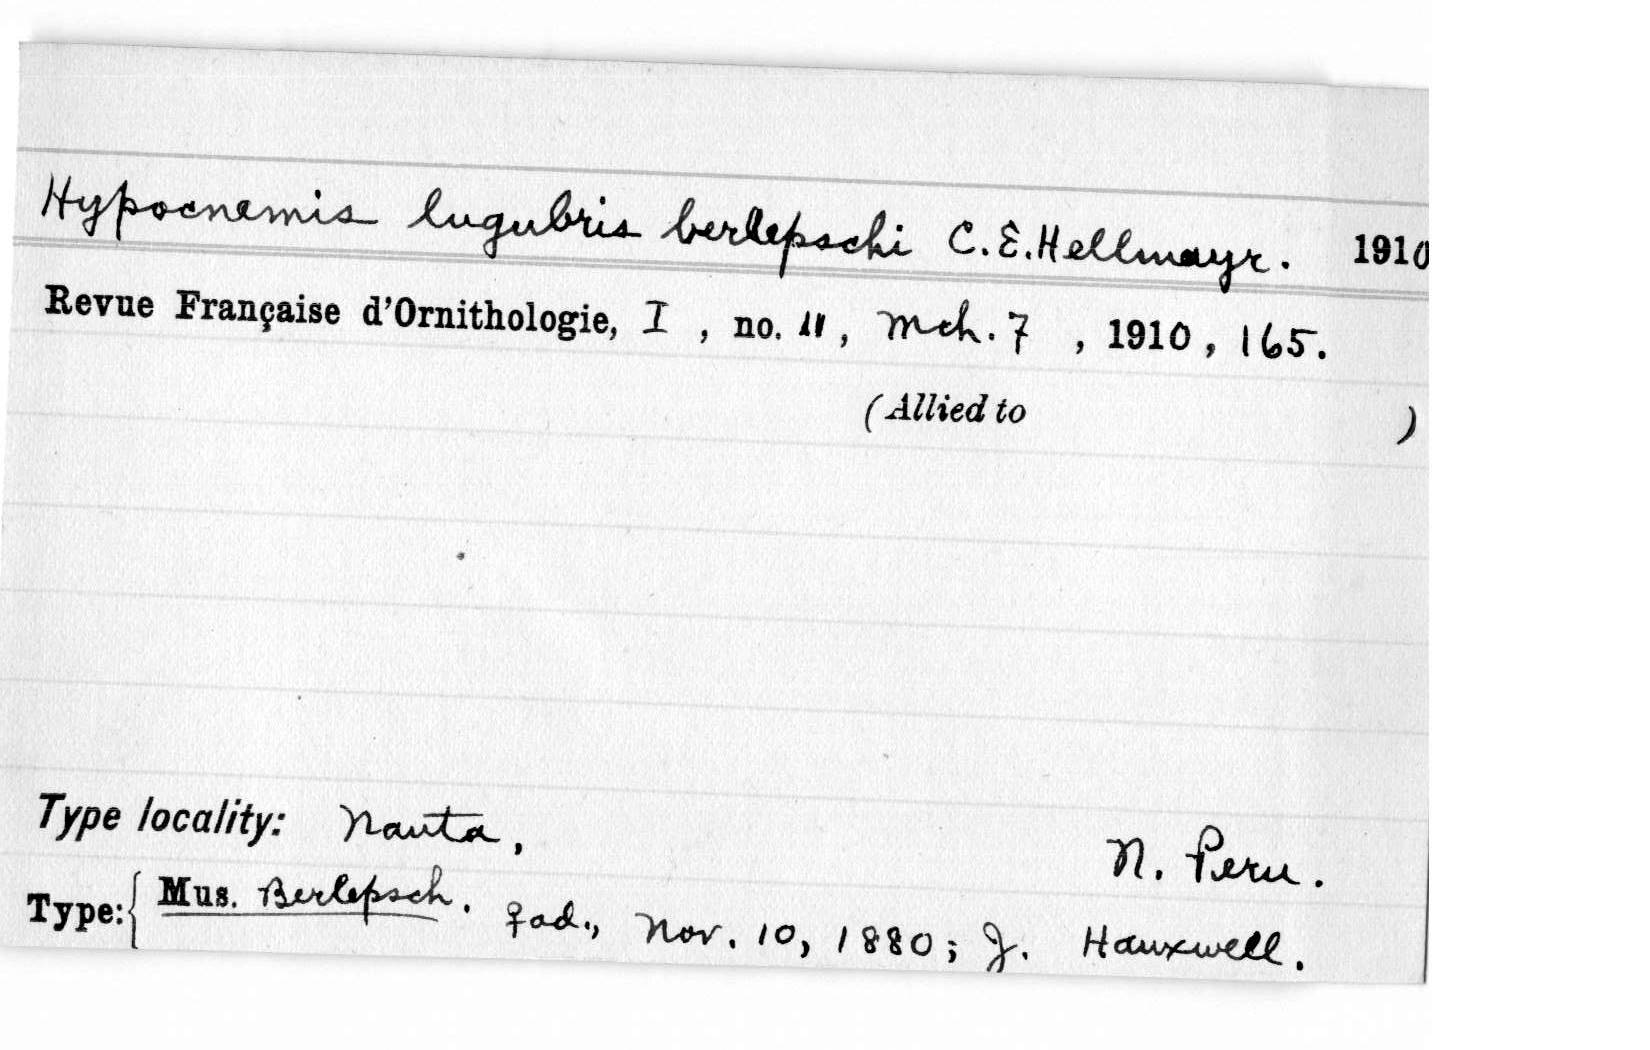 Hypocnemis lugubris berlepschi C.E.Hellmayr. 1910
Revue Française d'Ornithologie, I, no. 11, Mch. 7, 1910, 165.
(Allied to )
Type locality: Nauta, N. Peru.
Type: { Mus. Berlepsch. ♀ad., Nov. 10, 1880; J. Hauxwell.